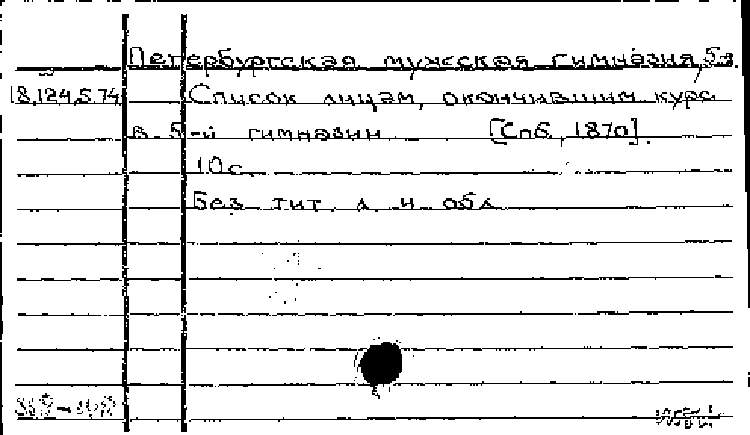 Петербургская мужская гимназия, 5я.
18.124.5.74 Список лицам, окончившим курс
в 5-й гимназии [Спб, 1870].
10с.
Без тит. л. и обл.